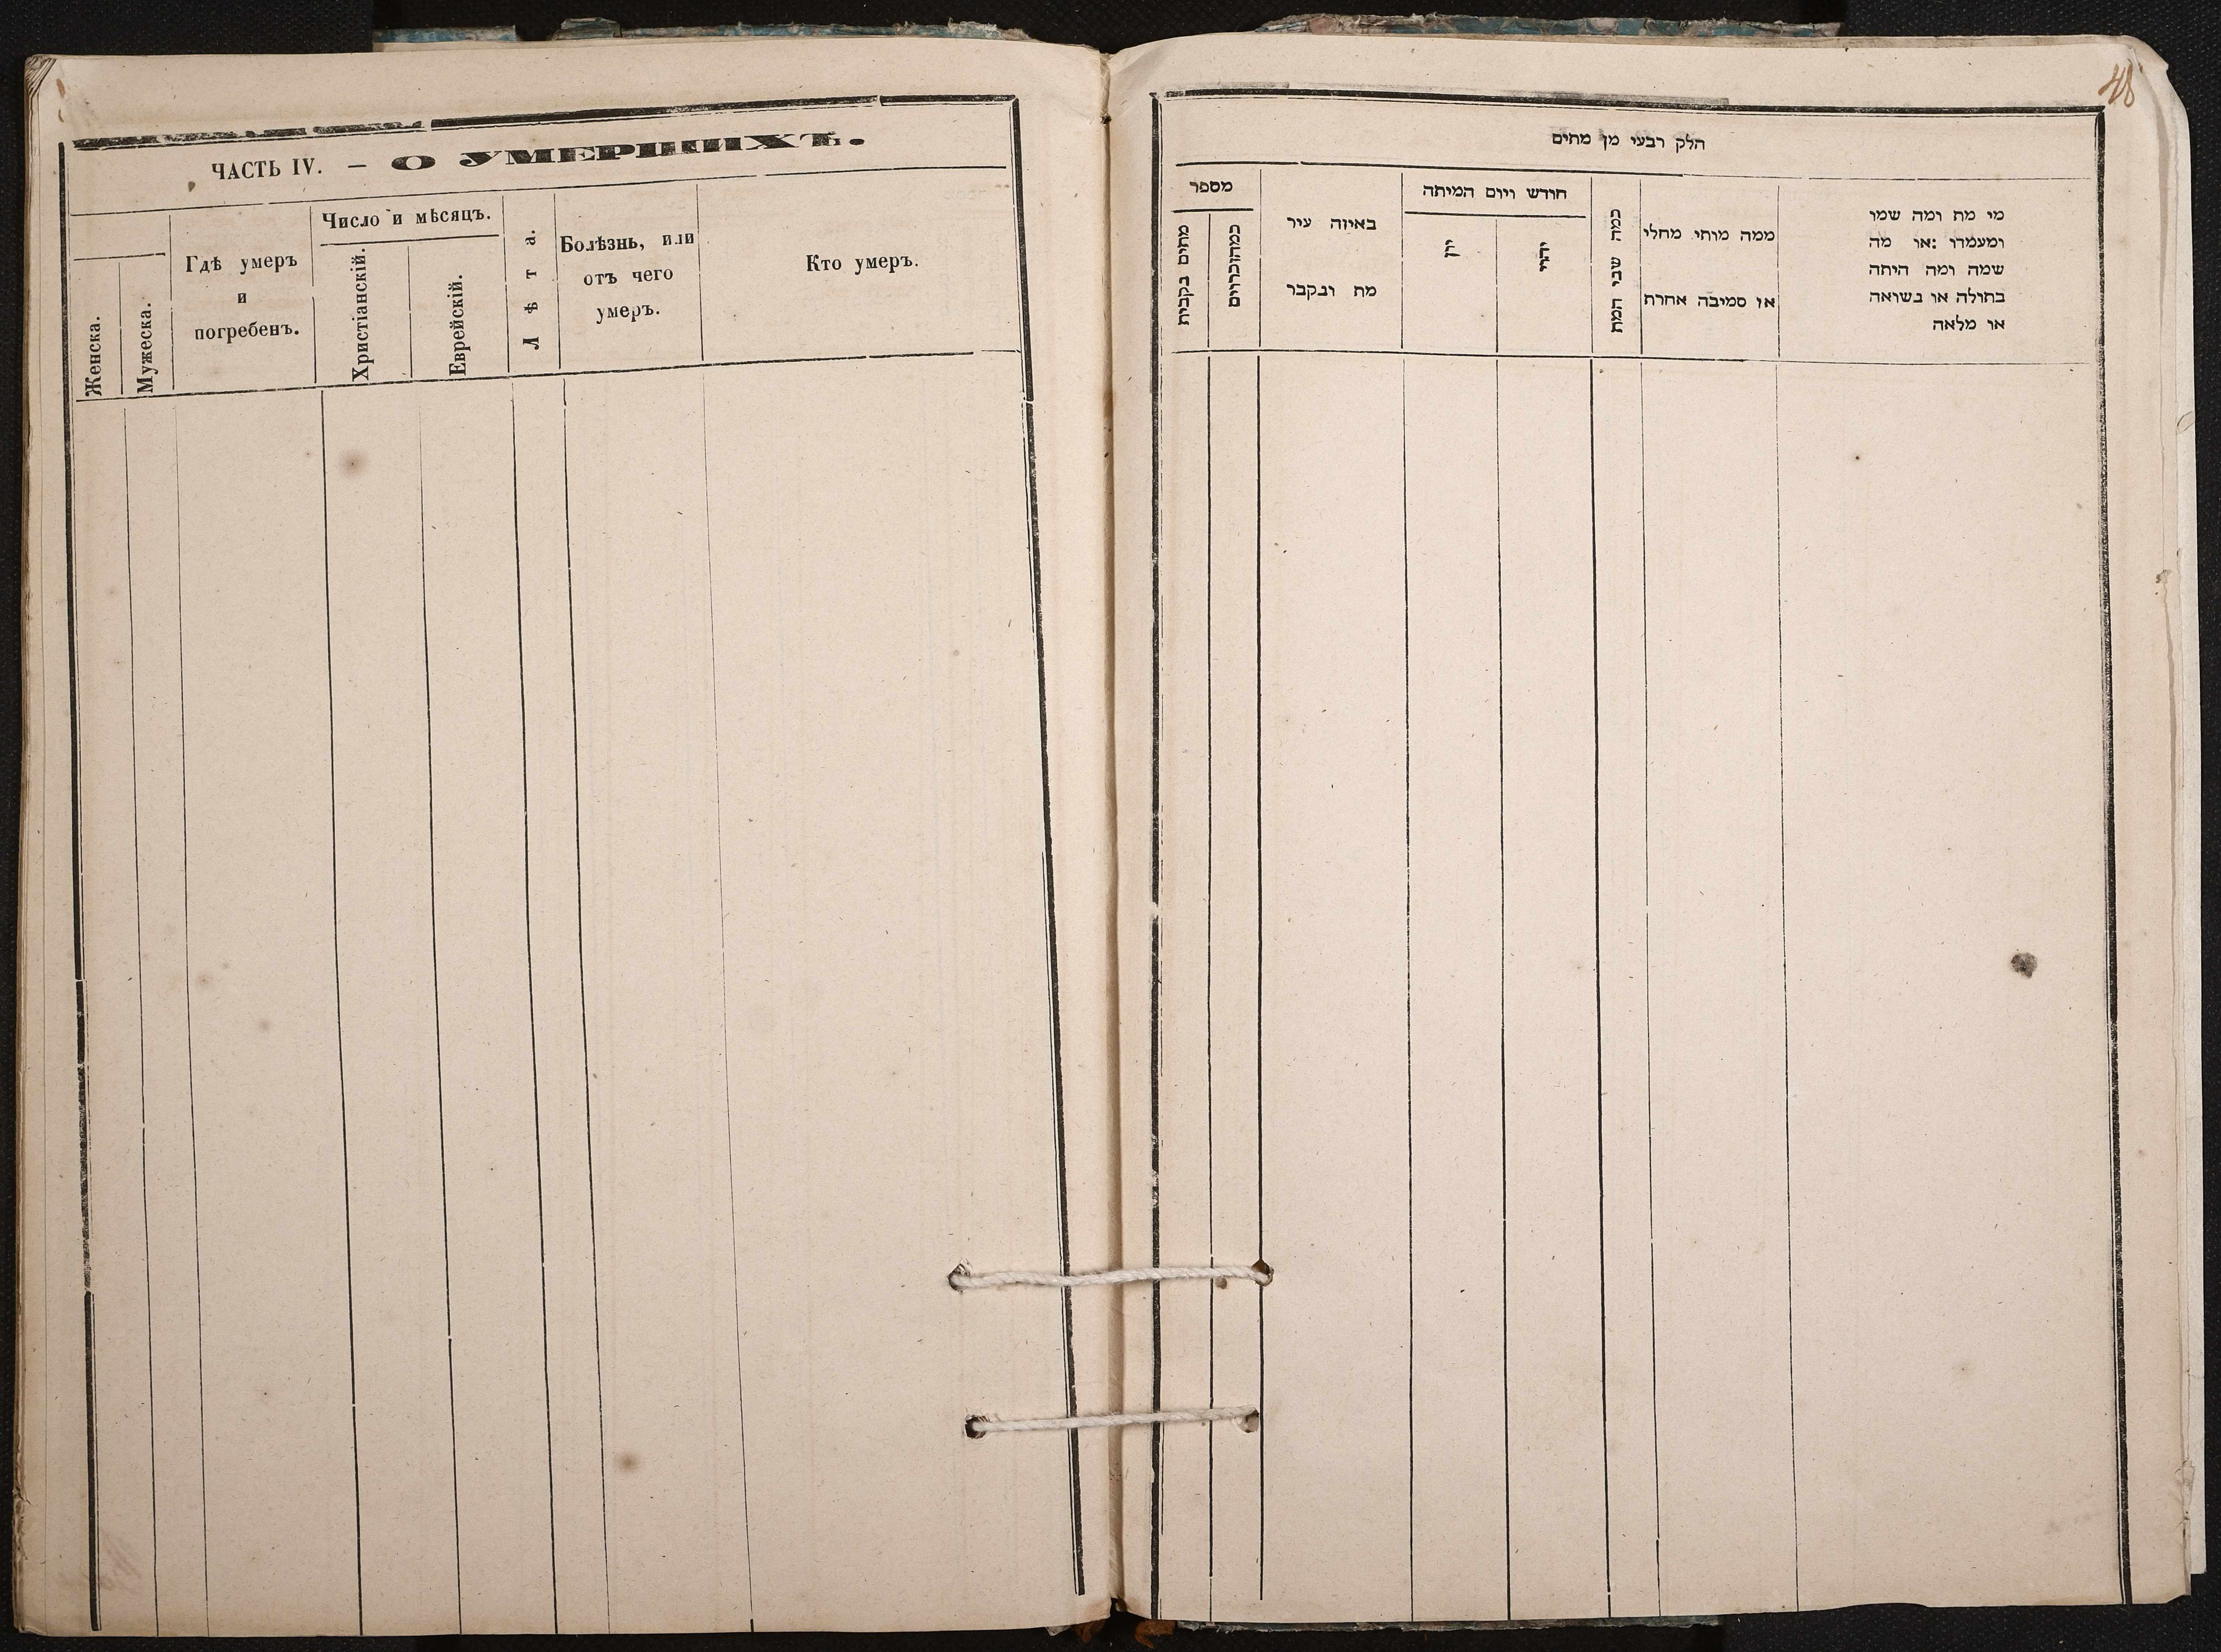 ЧАСТЬ IV. — О УМЕРШИХЪ.
Женска.
Мужеска.
Гдѣ умеръ
и
погребенъ.
Число и мѣсяцъ.
Христіанскій.
Еврейскій.
Лѣта.
Болѣзнь, или
отъ чего
умеръ.
Кто умеръ.
48
חלק רבעי מן מתים
מספר
באיזה עיר
מת ונקבר
חודש ויום המיתה
יון
יהודי
כמה שני המת
ממה מותי מחלי
או סמיבה אחרת
מי מת ומה שמו
ומעמדו :או מה
שמה ומה היתה
בתולה או נשואה
או מלאה